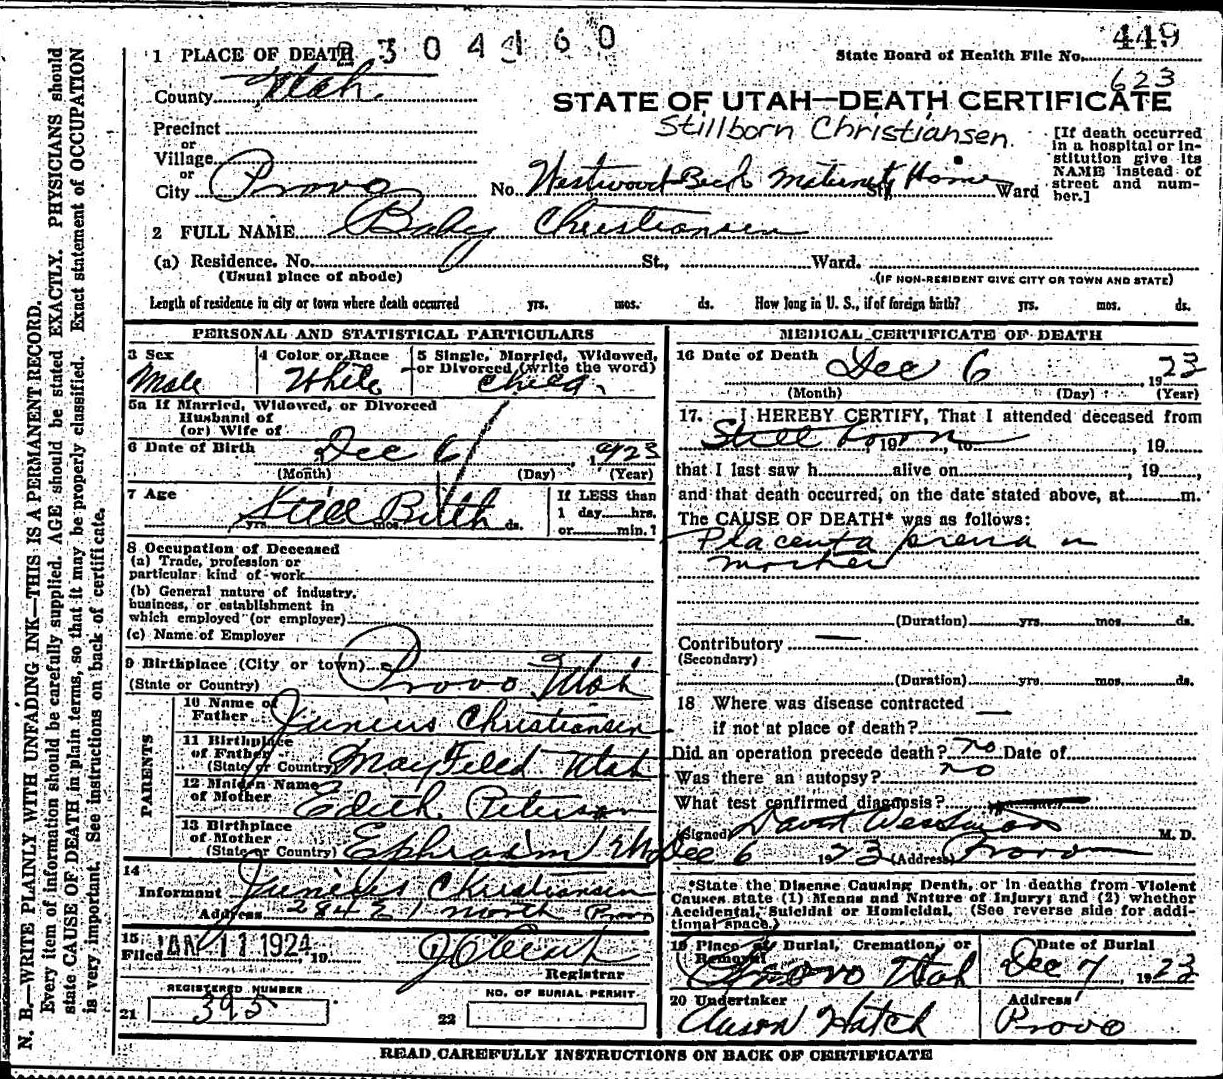 2304160
449
State Board of Health File No.
623
1 PLACE OF DEATH
County Utah
STATE OF UTAH—DEATH CERTIFICATE
Stillborn Christiansen.
Precinct
or
Village
or
City Provo No. Westwood Maternity Home St., Ward
[If death occurred
in a hospital or in-
stitution give its
NAME instead of
street and num-
ber.]
2 FULL NAME Baby Christiansen
(a) Residence. No. St., Ward.
(Usual place of abode) (IF NON-RESIDENT GIVE CITY OR TOWN AND STATE)
Length of residence in city or town where death occurred yrs. mos. ds. How long in U. S., if of foreign birth? yrs. mos. ds.
PERSONAL AND STATISTICAL PARTICULARS
3 Sex
Male
4 Color or Race
White
5 Single, Married, Widowed,
or Divorced (write the word)
Child
5a If Married, Widowed, or Divorced
Husband of
(or) Wife of
6 Date of Birth Dec 6 1923
(Month) (Day) (Year)
7 Age Still Birth
yrs. mos. ds.
If LESS than
1 day hrs.
or min.?
8 Occupation of Deceased
(a) Trade, profession or
particular kind of work
(b) General nature of industry,
business, or establishment in
which employed (or employer)
(c) Name of Employer
9 Birthplace (City or town) Provo Utah
(State or Country)
PARENTS
10 Name of
Father Junius Christiansen
11 Birthplace
of Father
(State or Country) Mayfield Utah
12 Maiden Name
of Mother Edith Peterson
13 Birthplace
of Mother
(State or Country) Ephraim Utah
14
Informant Junius Christiansen
Address 284 E 1 North Provo
15
Filed JAN 11 1924, 19
Registrar
REGISTERED NUMBER
21 395
NO. OF BURIAL PERMIT
22
MEDICAL CERTIFICATE OF DEATH
16 Date of Death Dec 6 1923
(Month) (Day) (Year)
17. I HEREBY CERTIFY, That I attended deceased from
Still born, 19, to, 19
that I last saw h alive on, 19
and that death occurred, on the date stated above, at m.
The CAUSE OF DEATH* was as follows:
Placenta previa in
mother
(Duration) yrs. mos. ds.
Contributory —
(Secondary)
(Duration) yrs. mos. ds.
18 Where was disease contracted —
if not at place of death?
Did an operation precede death? no Date of
Was there an autopsy? no
What test confirmed diagnosis?
(Signed) David Westwood M. D.
Dec 6 1923 (Address) Provo
*State the Disease Causing Death, or in deaths from Violent
Causes state (1) Means and Nature of Injury; and (2) whether
Accidental, Suicidal or Homicidal. (See reverse side for addi-
tional space.)
19 Place of Burial, Cremation, or
Removal
Provo Utah
Date of Burial
Dec 7 1923
20 Undertaker
Anson Hatch
Address
Provo
READ CAREFULLY INSTRUCTIONS ON BACK OF CERTIFICATE
N. B.—WRITE PLAINLY WITH UNFADING INK—THIS IS A PERMANENT RECORD.
Every item of information should be carefully supplied. AGE should be stated EXACTLY. PHYSICIANS should
state CAUSE OF DEATH in plain terms, so that it may be properly classified. Exact statement of OCCUPATION
is very important. See instructions on back of certificate.